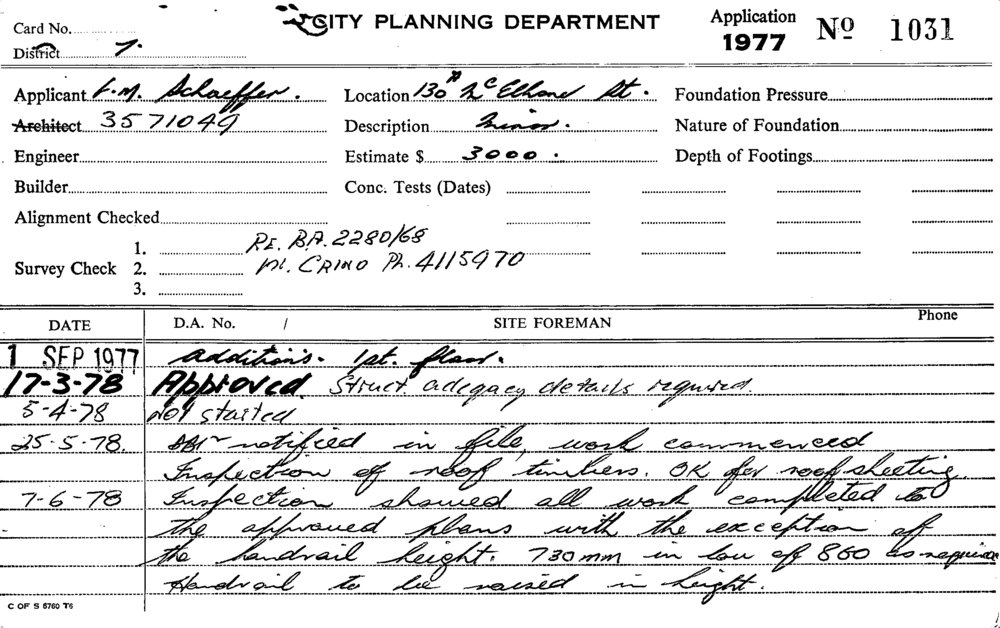 CITY PLANNING DEPARTMENT
Application
1977
No 1031
Card No.
District 7.
Applicant F.M. Schaeffer.
Location 130A McElhone St.
Foundation Pressure
Architect 3571049
Description Minor.
Nature of Foundation
Engineer
Estimate $ 3000.
Depth of Footings
Builder
Conc. Tests (Dates)
Alignment Checked
Survey Check
1. RE. B.A. 2280/68
2. M. CRINO Ph. 4115970
3.
DATE D.A. No. / SITE FOREMAN Phone
1 SEP 1977 Additions. 1st. floor.
17-3-78 Approved. Struct. adeqacy details required.
5-4-78 Not started
25.5.78. notified in file, work commenced
Inspection of roof timbers. OK for roof sheeting
7-6-78 Inspection showed all work completed to
the approved plans with the exception of
the handrail height. 730mm in lou of 860 as required
Handrail to be raised in height.
C OF S 6760 T6